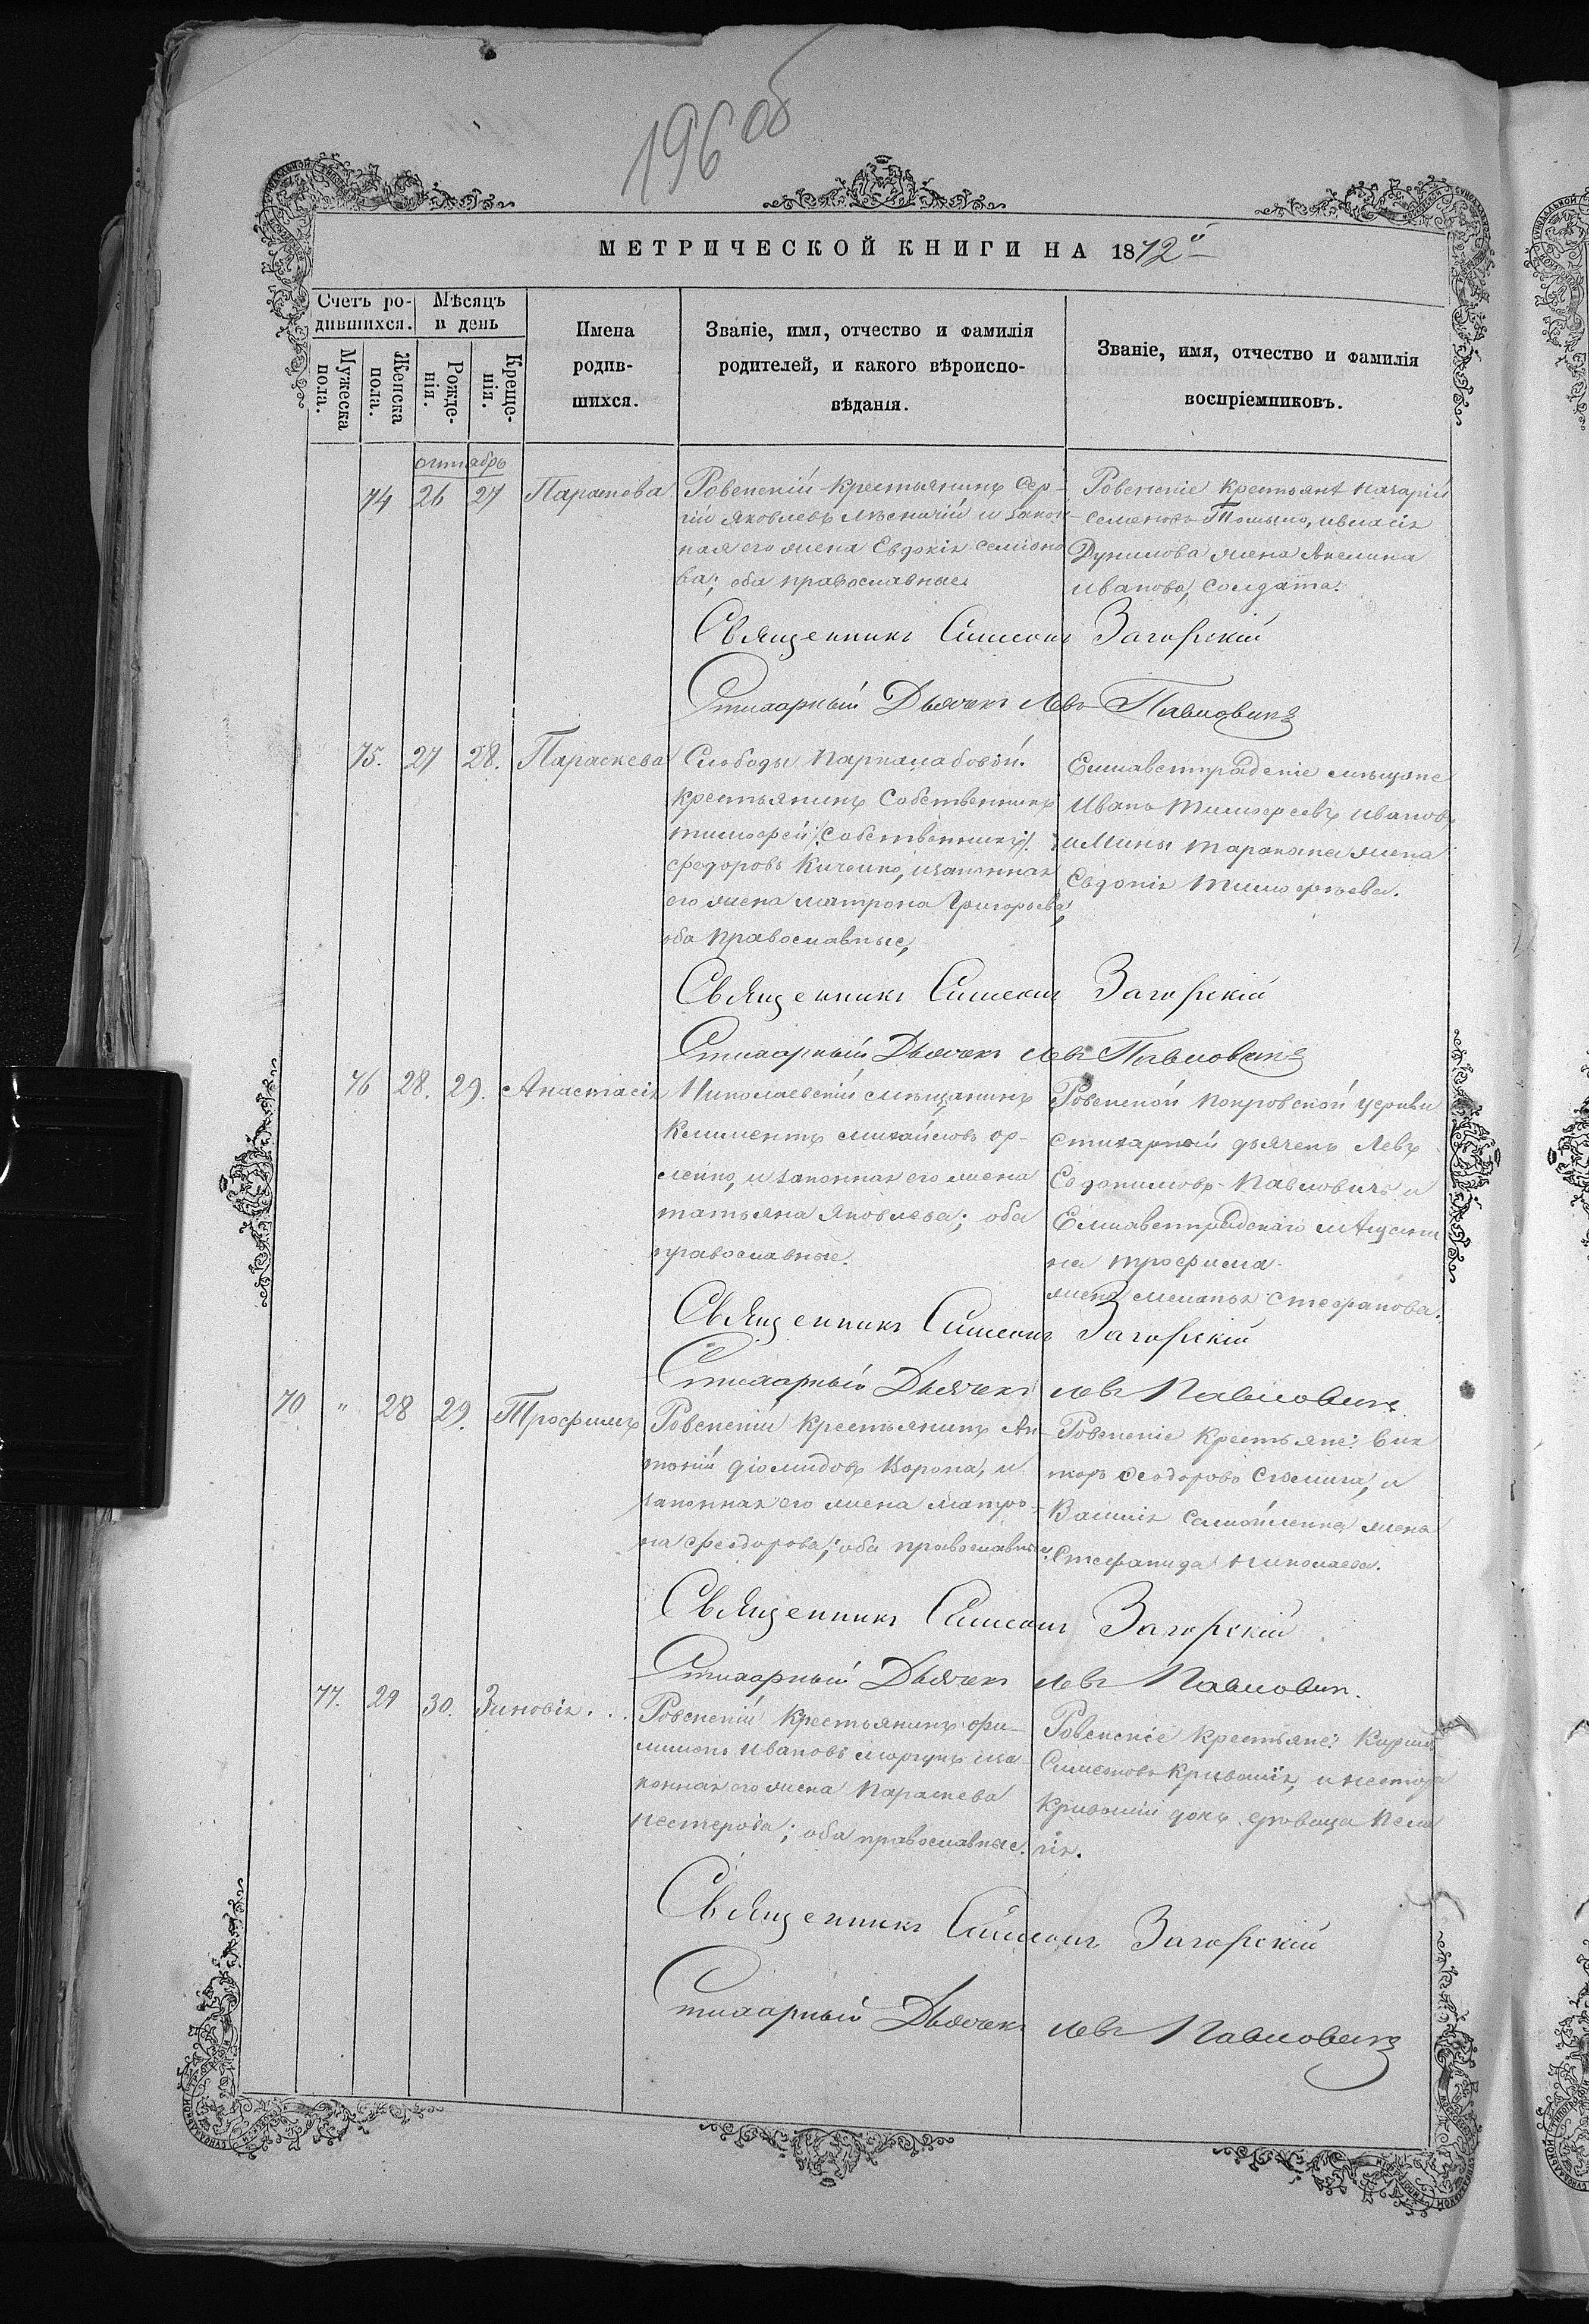 196 об
МЕТРИЧЕСКОЙ КНИГИ НА 1872й
Счетъ ро-
дившихся.
Мѣсяцъ
и день
Мужеска
пола.
Женска
пола.
Рожде-
нія.
Креще-
нія.
Имена
родив-
шихся.
Званіе, имя, отчество и фамилія
родителей, и какого вѣроиспо-
вѣданія.
Званіе, имя, отчество и фамилія
воспріемниковъ.
октябрь
74 26 27 Параскева
Ровенскій крестьянинъ Сер-
гій Яковлевъ и закон-
ная его жена Евдокія Семіоно
ва; оба православные
Ровенскіе крестьяне Назарій
Семеновъ
жена Акилина
Иванова, солдата.
Священникъ Симеонъ Загорскій
Стихарный Дьячекъ Левъ Павловичъ
75. 27 28. Параскева
Слободы
крестьянинъ собственникъ
Тимофей /: собственникъ :/
Федоровъ Киченко, изаконная
его жена Матрона Григорьева,
оба православные,
Елисаветградскіе мѣщане
Иванъ Тимофеевъ Ивановъ
и Мины жена
Евдокія Тимофѣева.
Священникъ Симеонъ Загорскій
Стихарный Дьячекъ Левъ Павловичъ
76 28. 29. Анастасія
Николаевскій мѣщанинъ
Климентъ Михайловъ Ор-
ленко, и законная его жена
Татьяна Яковлева; оба
православные.
Ровенской Покровской церкви
стихарный дьячекъ Левъ
Евдокимовъ Павловичъ и
Елисаветградскаго мѣщани
на Трофима
жена Меланья Стефанова.
Священникъ Симеонъ Загорскій
Стихарный Дьячекъ Левъ Павловичъ
70 " 28 29. Трофимъ
Ровенскій крестьянинъ Ан-
тоній Діомидовъ Ворона, и
законная его жена Матро-
на Феодорова; оба православные.
Ровенскіе крестьяне: Вик
торъ Феодоровъ и
Василія Самойленка жена
Стефанида Николаева.
Священникъ Симеонъ Загорскій
Стихарный Дьячекъ Левъ Павловичъ.
77. 29 30. Зиновія...
Ровенскій крестьянинъ Фи-
лимонъ Ивановъ Моргунъ иза
конная его жена Параскева
Нестерова; оба православные.
Ровенскіе крестьяне: Кирилъ
Симеоновъ и Нестора
дочь дѣвица Пела
гія.
Священникъ Симеонъ Загорскій
Стихарный Дьячекъ Левъ Павловичъ